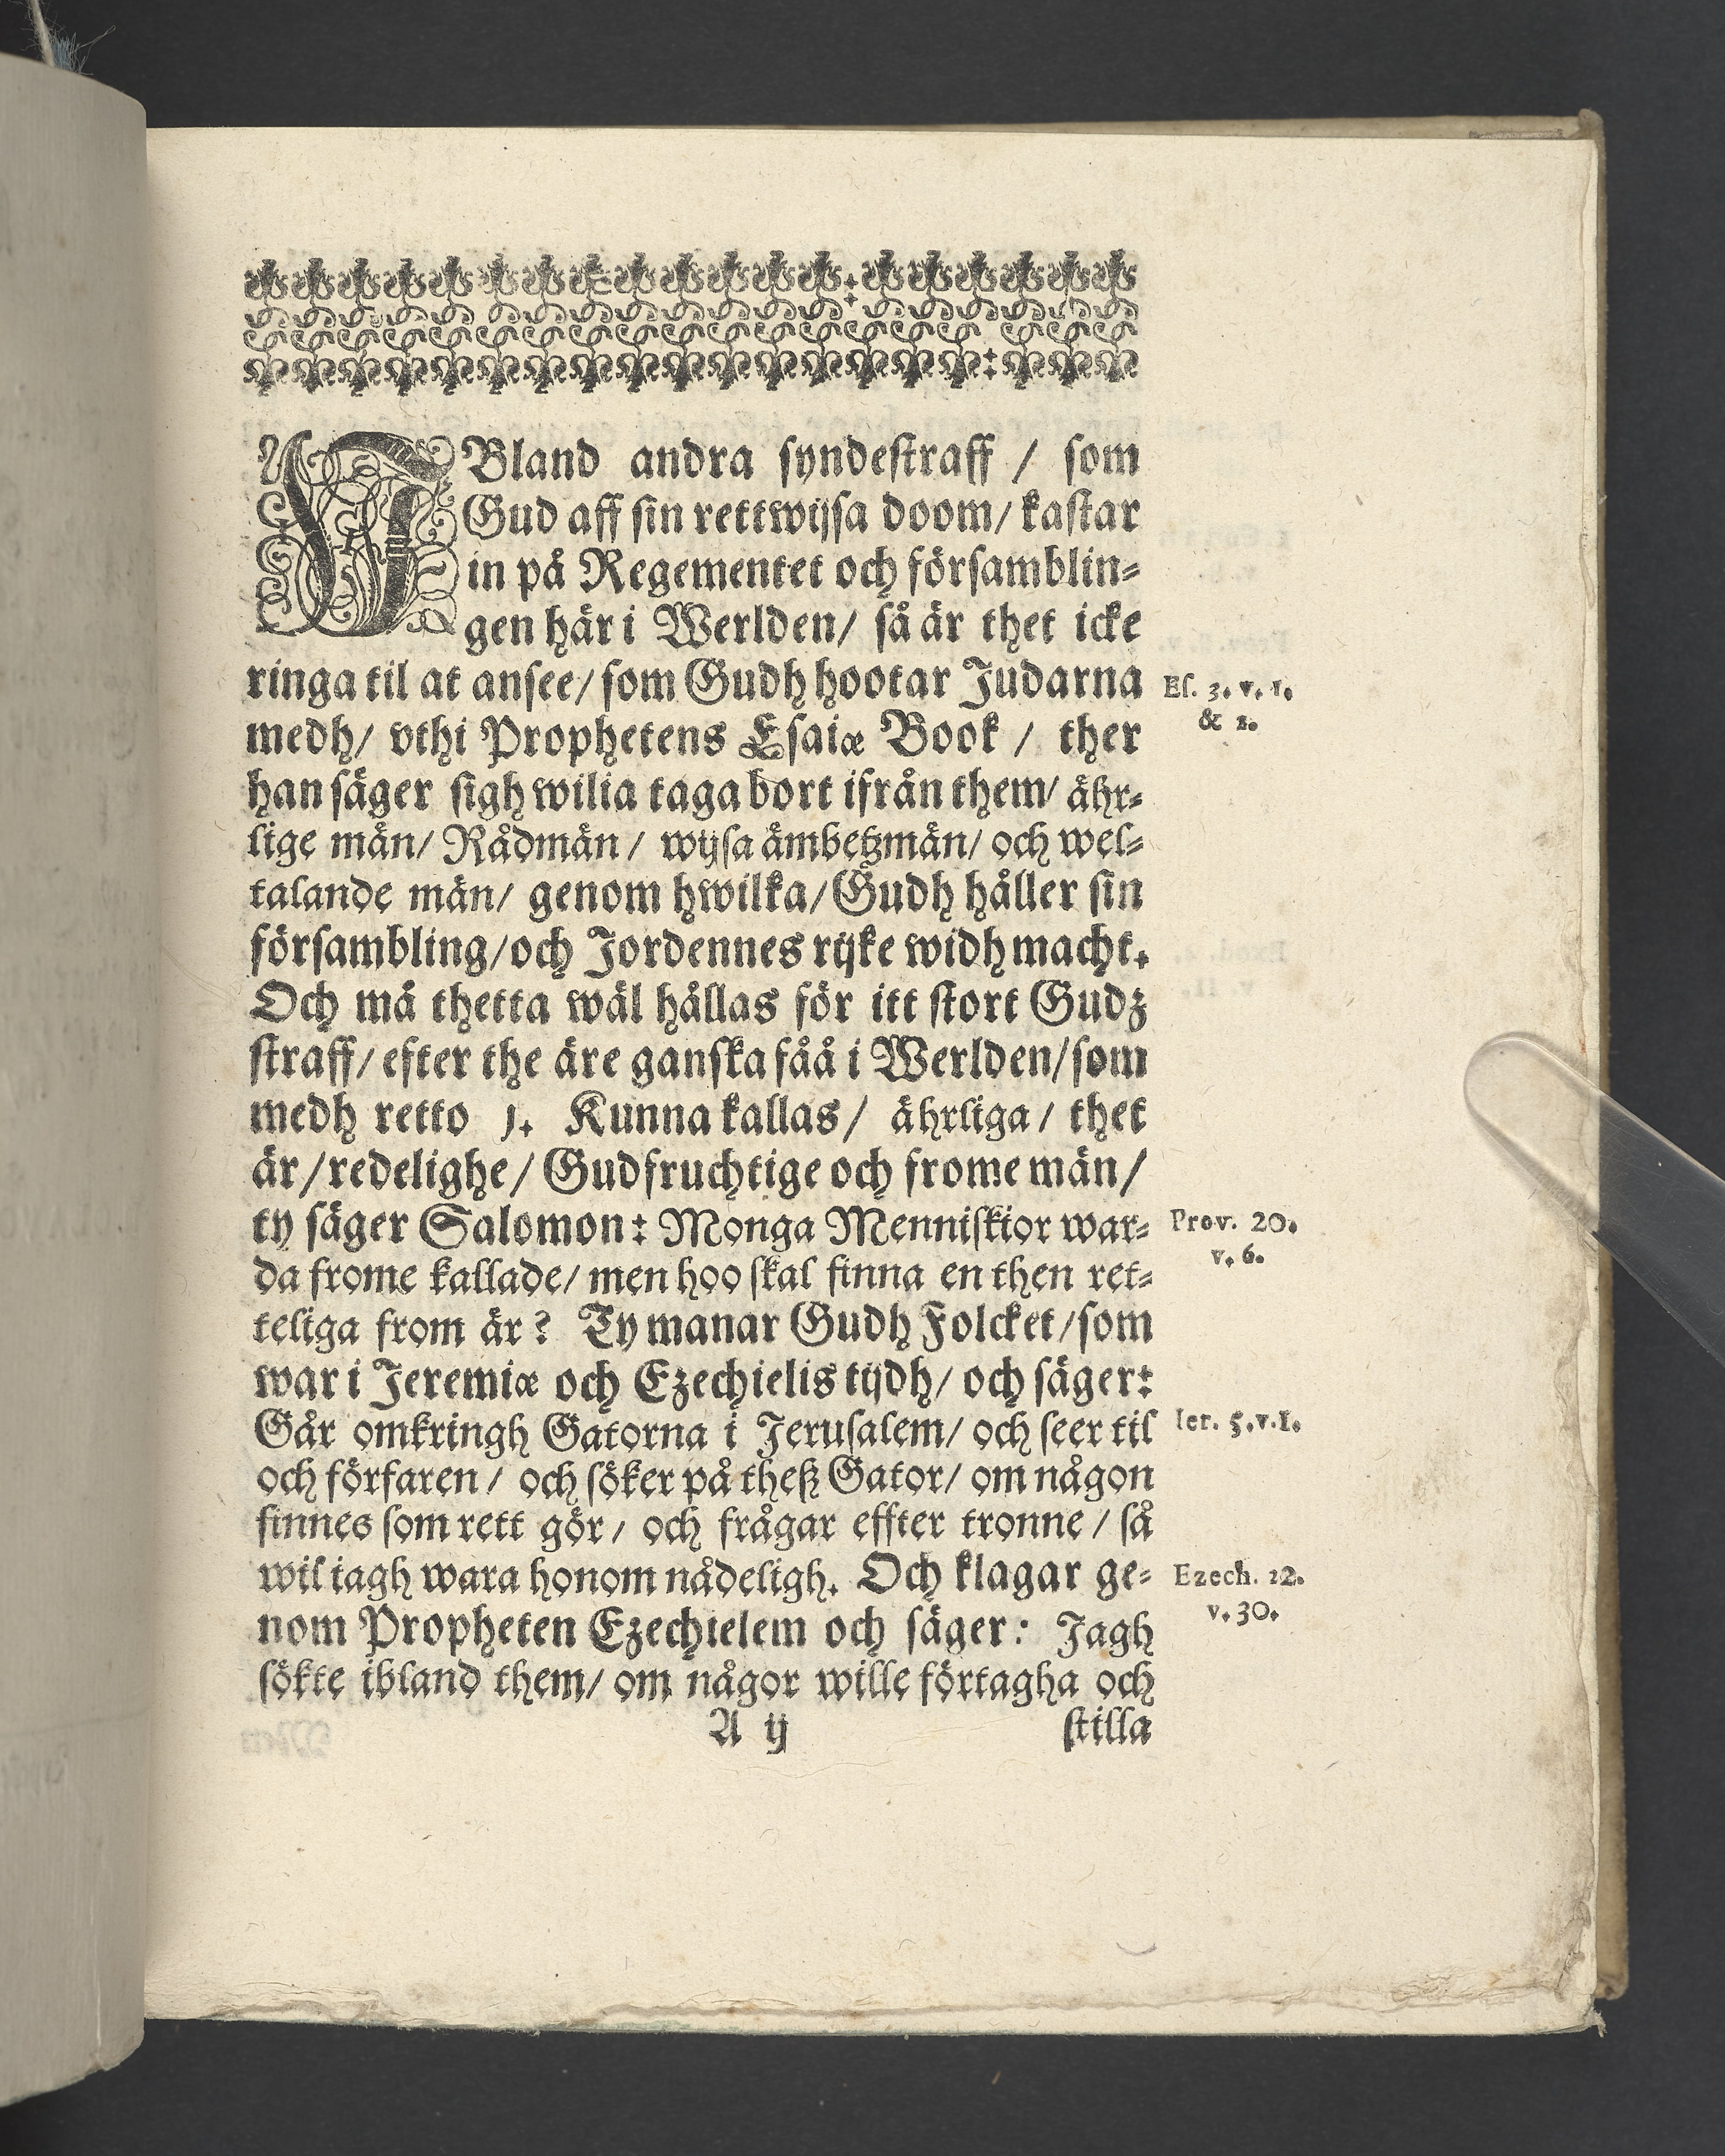 IBland andra syndestraff / som
Gud aff sin rettwijsa doom/ kastar
in på Regementet och församblin⸗
gen här i Werlden/ så är thet icke
ringa til at ansee/ som Gudh hootar Judarna
Es. 3. v. 1.
& 2.
medh/ vthi Prophetens Esaiæ Book / ther
han säger sigh wilia taga bort ifrån them/ ährl⸗
lige män/ Rådmän / wijsa ämbetzmän/ och wel⸗
talande män/ genom hwilka/ Gudh håller sin
försambling/ och Jordennes rijke widh macht.
Och må thetta wäl hållas för itt stort Gudz
straff/ efter the äre ganska fåå i Werlden/ som
medh retto 1. Kunna kallas/ ährliga / thet
är/ redelighe/ Gudfruchtige och frome män/
ty säger Salomon: Monga Menniskior war⸗
Prov. 20.
v. 6.
da frome kallade/ men hoo skal finna en then ret⸗
teliga from är? Ty manar Gudh Folcket/ som
war i Jeremiæ och Ezechielis tijdh/ och säger:
Går omkringh Gatorna i Jerusalem/ och seer til
Ier. 5. v. I.
och förfaren / och söker på theß Gator/ om någon
finnes som rett gör/ och frågar effter tronne / så
wil iagh wara honom nådeligh. Och klagar ge⸗
Ezech. 12.
v. 30.
nom Propheten Ezechielem och säger: Jagh
sökte ibland them/ om någor wille förtagha och
A ij
stilla